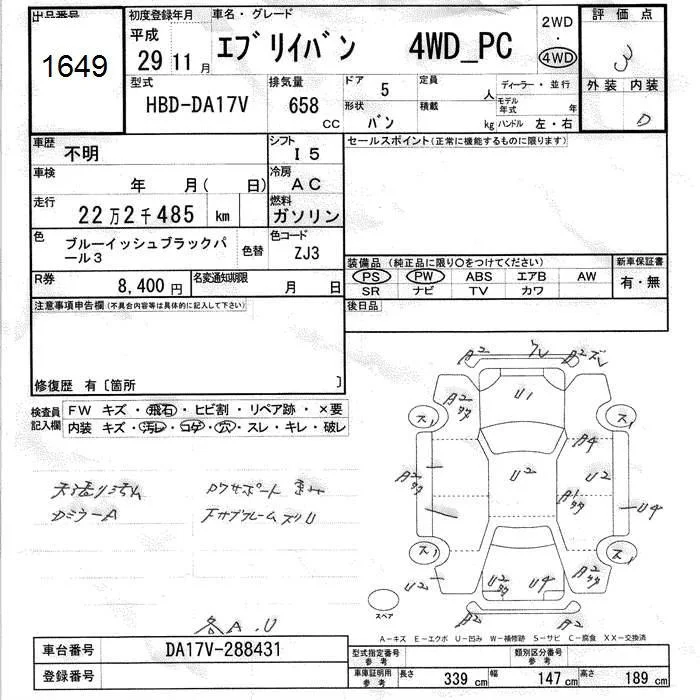 出品番号
1649
初度登録年月
平成
29 11 月
車名・グレード
エブリイバン 4WD_PC
2WD
・
4WD
評価点
3
外装 内装
D
型式
HBD-DA17V
排気量
658 CC
ドア 5
形状 バン
定員 人
積載 kg
ディーラー・並行
モデル年式 年
ハンドル 左・右
車歴 不明
シフト I5
車検 年 月( 日)
冷房 AC
走行 22万2千485 km
燃料 ガソリン
色 ブルーイッシュブラックパール3 色替
色コード ZJ3
R券 8,400 円
名変通知期限 月 日
セールスポイント(正常に機能するものに限ります)
装備品 (純正品に限り〇をつけてください)
PS PW ABS エアB AW
SR ナビ TV カワ
新車保証書
有・無
後日品
注意事項申告欄(不具合内容等は具体的に記入して下さい)
修復歴 有〔箇所 〕
検査員記入欄
FW キズ・飛石・ヒビ割・リペア跡・×要
内装 キズ・汚レ・コゲ・穴・スレ・キレ・破レ
A2 A2
U1
A2
A4
U2 U2
A2
A1
U4
ス1 ス1
ス1 ス1
U2 U2 U4 A2
A2 A2
スペア
DミラーA
各A.U
A-キズ E-エクボ U-凹み W-補修跡 S-サビ C-腐食 XX-交換済
車台番号 DA17V-288431
登録番号
型式指定番号 参考
類別区分番号 参考
車庫証明用 参考
長さ 339 cm 幅 147 cm 高さ 189 cm